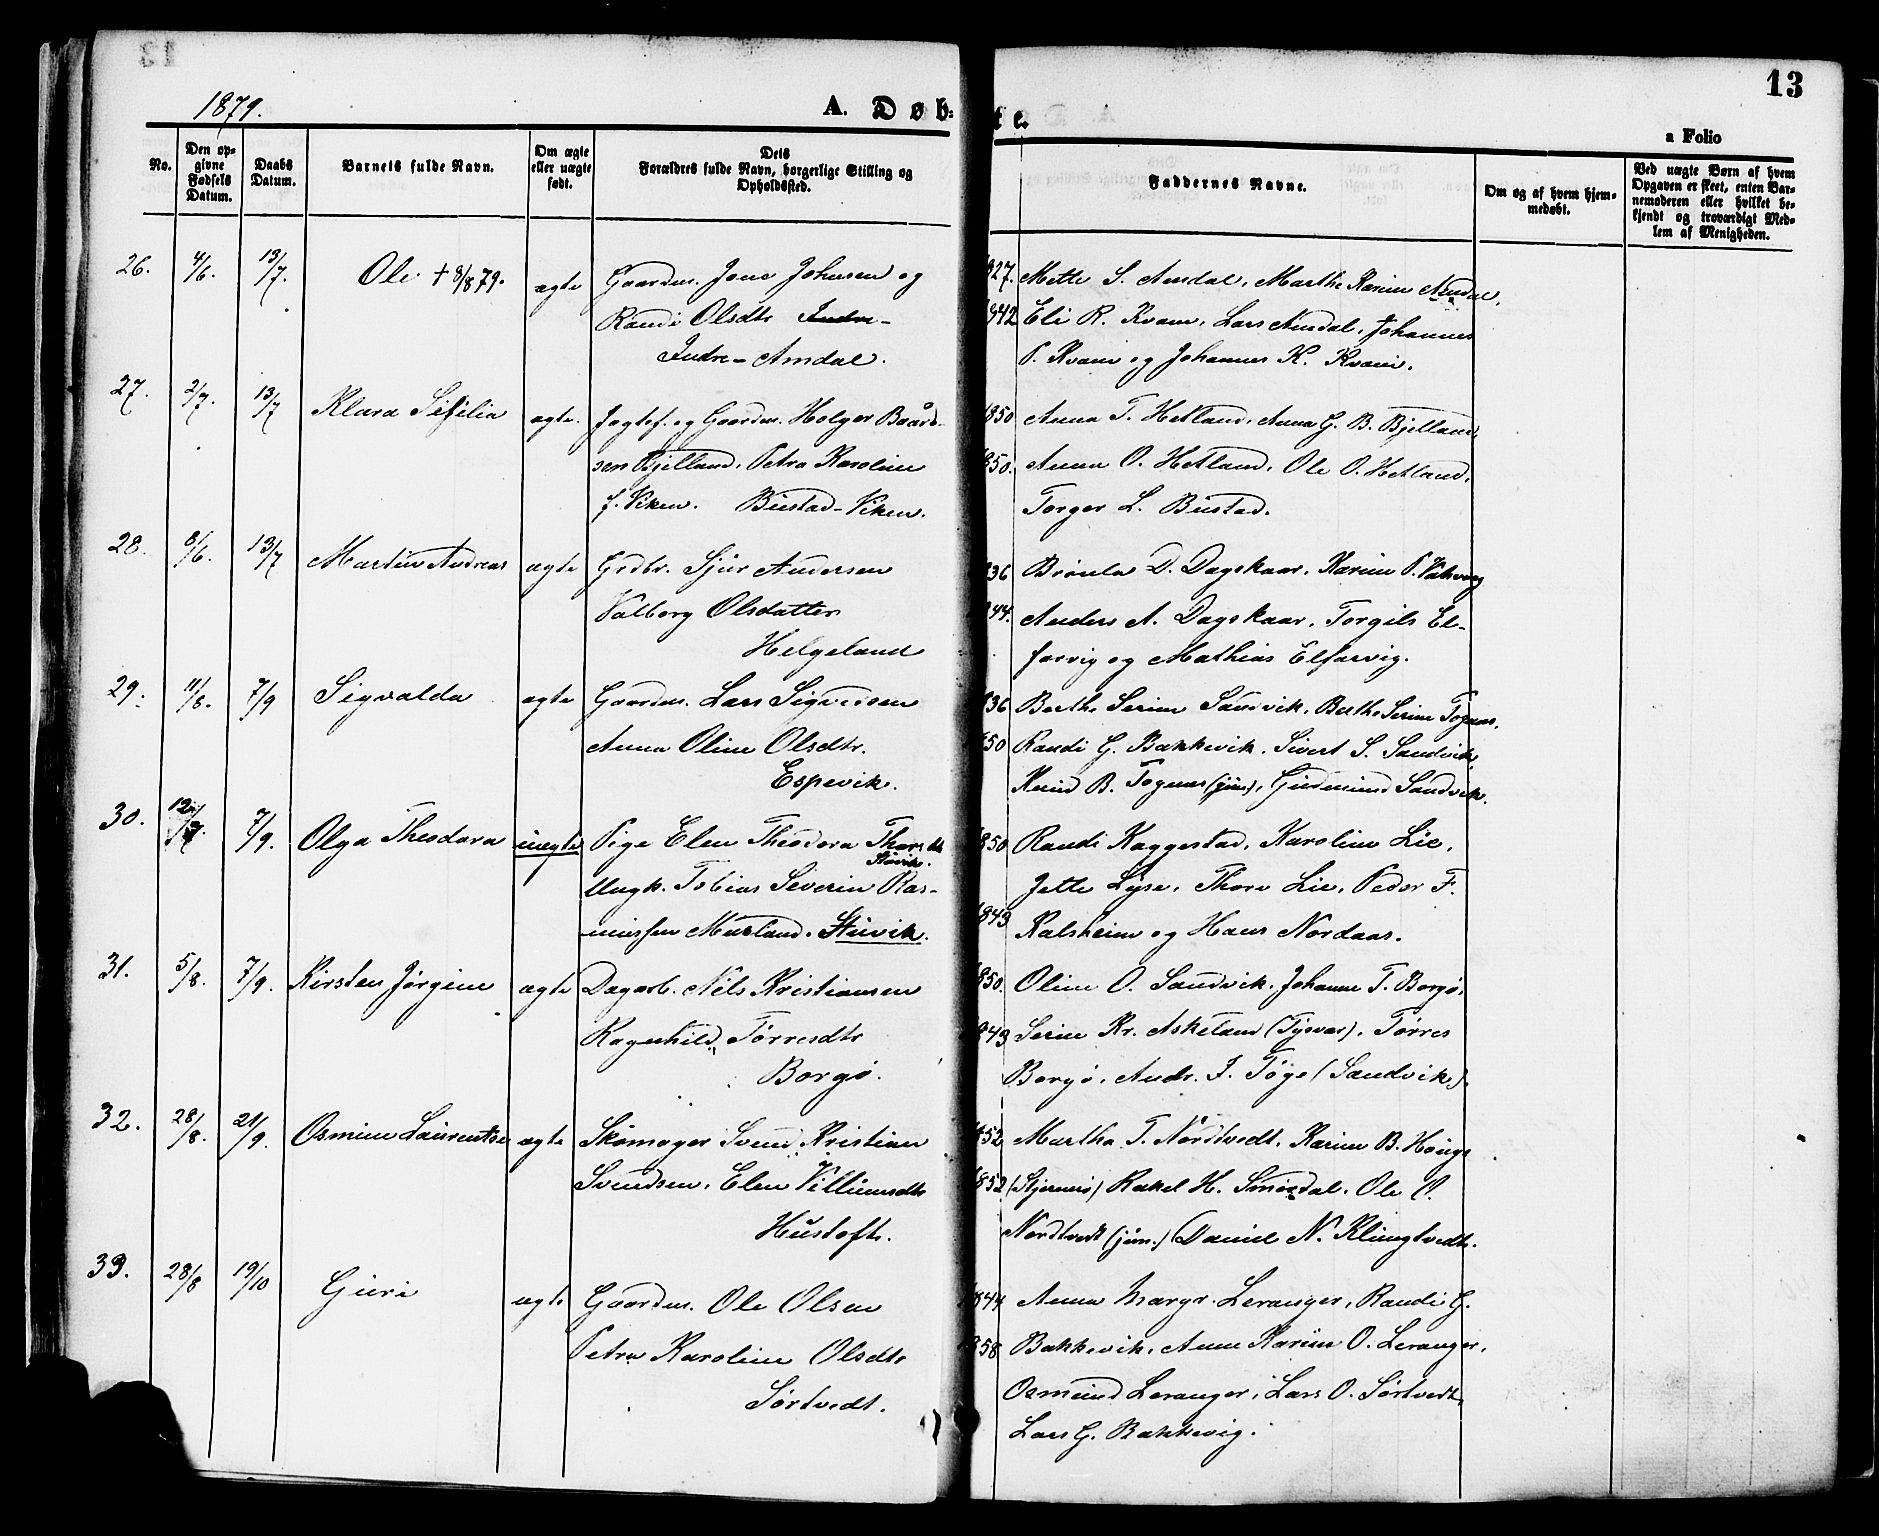 13
1879.
A. Døbte.
a Folio
No.
Den opgivne Fødsels Datum.
Daabs Datum.
Barnets fulde Navn.
Om ægte eller uægte født.
Dets Forældres fulde Navn, borgerlige Stilling og Opholdssted.
Faddernes Navne.
Om og af hvem hjemmedøbt.
Ved uægte Børn af hvem Opgaven er skeet, enten Barnemoderen eller hvilket bekjendt og troværdigt Medlem af Menigheden.
26. 4/6. 13/7. Ole + 8/8 79. ægte Gaardm. Jone Johnsen og 1827. Mette S. Amdal, Marthe Karine Amdal,
Randi Olsdtr Indre- 1842 Eli R. Kvam, Lars Amdal, Johannes
Indre-Amdal. P. Kvam og Johannes K. Kvam.
27. 2/7. 13/7 Klara Sifilia ægte. Jagtef. og Gaardm. Holger Baard- 1850 Anna T. Hetland, Anna G. B. Bjelland,
sen Bjelland, Petra Karoline 1850. Anna O. Hetland, Ole O. Hetland,
f. Viken. Bustad-Viken. Torger L. Bustad.
28. 8/6. 13/7 Martin Andreas ægte Grdbr. Sjur Andersen 1836 Brønla D. Dagskaar, Karine P.
Valborg Olsdatter 1844. Anders A. Dagskaar, Torgils El-
Helgeland farvig og Mathias Elfarvig.
29. 11/8. 7/9 Sigvalda ægte Gaardm. Lars Sigvedsen 1836 Berthe Serine Sandvik, Berthe Serine Fognas,
Anna Oline Olsdtr. 1850 Randi G. Bakkevik, Sivert S. Sandvik,
Espevik. Knud B. Fognas (jun), Gudmund Sandvik.
30. 7/9. Olga Theodora uægte Pige Elen Theodora Thorsdtr 1850 Randi Kaggestad, Karoline Lie,
Støvik.
Ungk. Tobias Severin Ras- Jette Lyse, Thore Lie, Peder F.
mussen Musland. Støvik. 1843 Kalsheim og Hans Nordaas.
31. 5/8. 7/9. Kirsten Jørgine ægte Dagarb. Nils Kristiansen 1850. Oline O. Sandvik, Johanne T. Borgø,
Ragnhild Tørresdtr 1843 Serine Kr. Askeland (Tysvær), Tørres
Borgø. Borgø, Andr. J. Tøge (Sandvik).
32. 28/8. 21/9. Osmine Laurentse ægte Skomager Svend Kristian 1852 Martha T. Nordtvedt, Karine B. Houge
Svendsen, Elen Villumsdtr 1852 (Stjernerø) Rakel H. Smørdal, Ole O.
Hustoft. Nordtvedt (jun.) Daniel N. Klungtvedt.
33. 28/8 19/10 Guri ægte Gaardm. Ole Olsen 1844 Anna Margr. Leranger, Randi G.
Petra Karoline Olsdtr 1858 Bakkevik, Anne Karine O. Leranger,
Sørtvedt. Osmund Leranger, Lars O. Sørtvedt,
Lars G. Bakkevig.